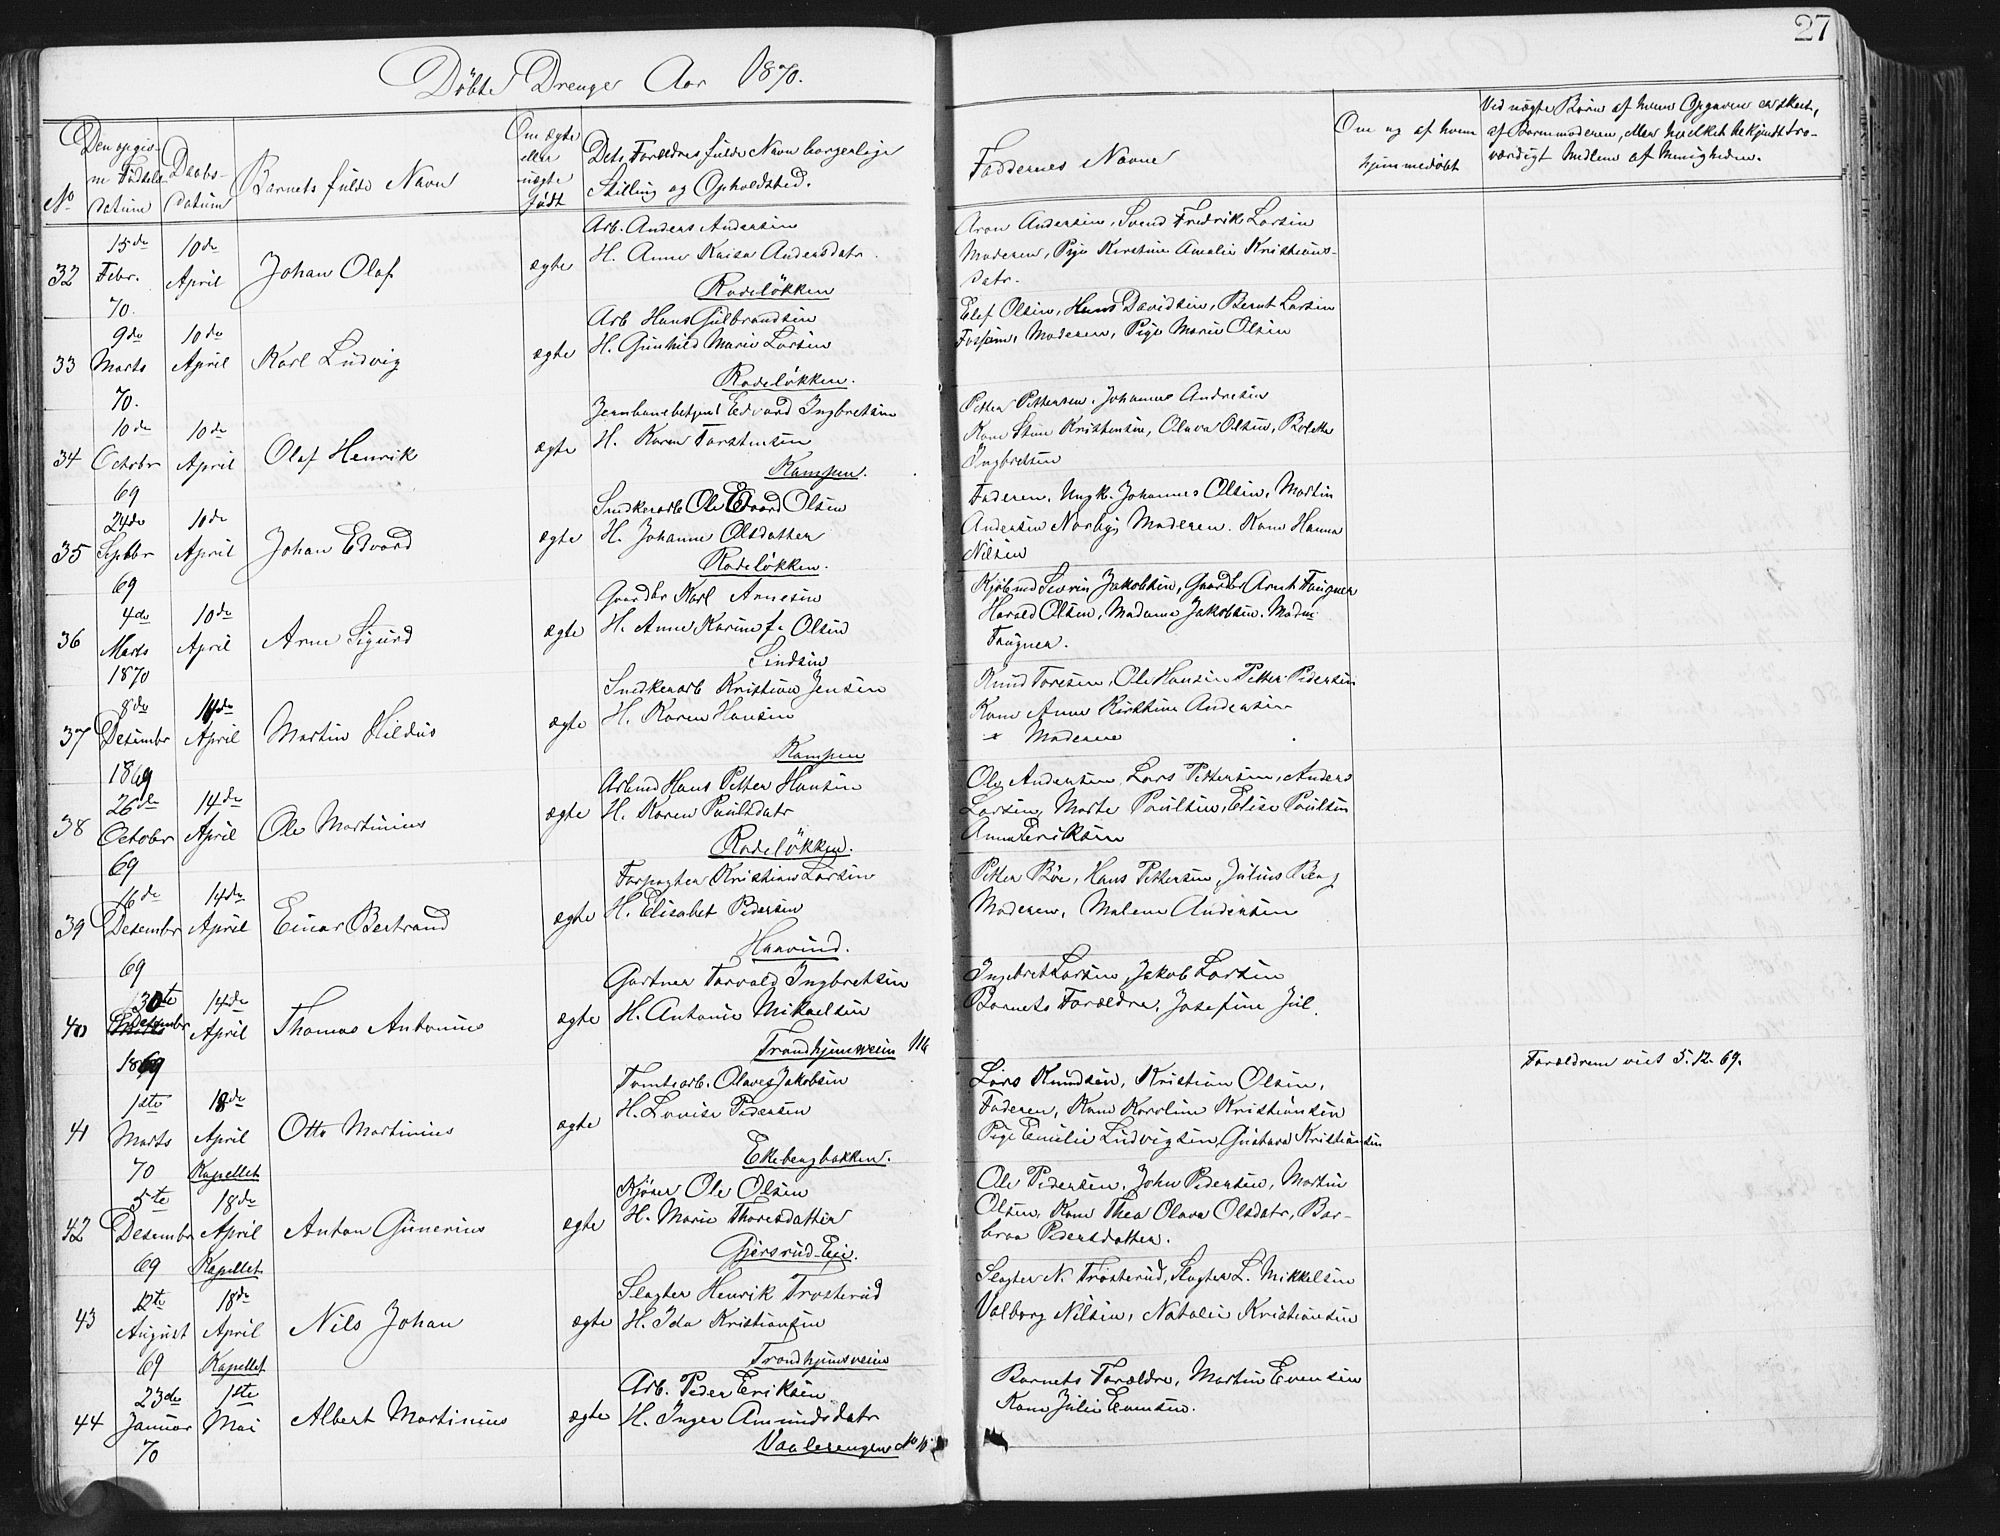 27
Döbte Drenge Aar 1870.
No
Den opgiv-
ne Födsels-
datum
Daabs-
datum
Barnets fulde Navn
Om ægte
eller
uægte
födt
Dets Forældres fulde Navn borgerlige
Stilling og Opholdsted.
Faddernes Navne
Om og af hvem
hjemmedöbt
Ved uægte Börn af hvem Opgaven er skeet,
af Barnmoderen, eller hvilket bekjendt tro-
værdigt Medlem af Menigheden.
32
15de
Febr.
70.
10de
April
Johan Olaf
ægte
Arb. Anders Andersen
H. Anne Kaisa Andersdatr.
Rodelökken
Aron Andersen, Svend Fredrik Larsen
Moderen, Pige Kirstine Amalie Kristians-
datr.
33
9de
Marts
70.
10de
April
Karl Ludvig
ægte
Arb Hans Gulbrandsen
H. Gunhild Marie Larsen
Rodelökken.
Elef Olsen, Hans Davidsen, Bernt Larsen
Fossum, Moderen, Pige Marie Olsen
34
10de
Octobr
69
10de
April
Olaf Henrik
ægte
Jernbanebetjent Edvard Ingbretsen
H. Karen Torstensen
Kampen.
Petter Pettersen, Johannes Andresen
Kone Stine Kristensen, Olava Olsen, Bolette
Ingbretsen
35
24de
Septbr
69
10de
April
Johan Edvard
ægte
Snedkerarb Ole Edvard Olsen
H. Johanne Olsdatter
Rodelökken.
Faderen, Ungk. Johannes Olsen, Martin
Andersen Norbyj Moderen. Kone Hanna
Nilsen
36
4de
Marts
1870
10de
April
Arne Sigurd
ægte
Gaardbr Karl Arnesen
H. Anne Karine f. Olsen
Sindsen
Kjöbmd Severin Jakobsen, Gaardbr Arnt Faugner
Harald Olsen, Madame Jakobsen. Madm:
Faugner.
37
8de
Desembr
1869
14de
April
Martin Hildus
ægte
Snedkerarb Kristian Jensen
H. Karen Hansen
Kampen
Knud Toresen, Ole Hansen Petter Pedersen
Kone Anne Kirstine Andersen
Moderen
38
26de
Octobr
69
14de
April
Ole Martinius
ægte
Arbmd Hans Petter Hansen
H. Karen Paulsdatr
Rodelökken.
Ole Andersen Lars Pettersen, Anders
Larsen, Marte Paulsen, Elise Paulsen
Anna Eriksen
39
16de
Desembr
69
14de
April
Einar Bertrand
ægte
Forpagter Kristian Larsen
H. Elisabet Pedersen
Haavind.
Petter Böe, Hans Pettersen, Julius Berg
Moderen, Malene Andersen
40
30te
Desembr
1869
14de
April
Thomas Antonius
ægte
Gartner Torvald Ingbretsen
H. Antonie Mikaelsen
Trondhjemsveien 116
Ingebret Larsen Jakob Larsen
Barnets Forældre, Josefine Jul.
41
1ste
Marts
70
18de
April
Kapellet
Otto Martinius
ægte
Tomtearb. Olaves Jakobsen
H. Lovise Pedersen
Ekebergbakken.
Lars Knudsen, Kristian Olsen,
Faderen, Kone Karoline Kristiansen
Pige Emilie Ludvigsen, Gustava Kristiansen
Forældrene viet 5.12.69.
42
5te
Desembr
69
18de
April
Kapellet
Anton Gunerius
ægte
Kjörer Ole Olsen
H. Marie Thoresdatter
Gjersrud-Eie.
Ole Pedersen, John Pedersen, Martin
Olsen, Kone Thea Olava Olsdatr, Bar-
braa Pedersdatter.
43
12te
August
69
18de
April
Kapellet
Nils Johan
ægte
Slagter Henrik Trosterud
H. Ida Kristiansen
Trondhjemsveien
Slagter N. Trosterud, Slagter L. Mikkelsen
Valborg Nilsen, Natalie Kristiansen
44
23de
Januar
70
1ste
Mai
Albert Martinius
ægte
Arb. Peder Eriksen
H. Inger Amundsdatr
Vaalerengen No 10.
Barnets Forældre, Martin Evensen
Kone Julie Evensen.